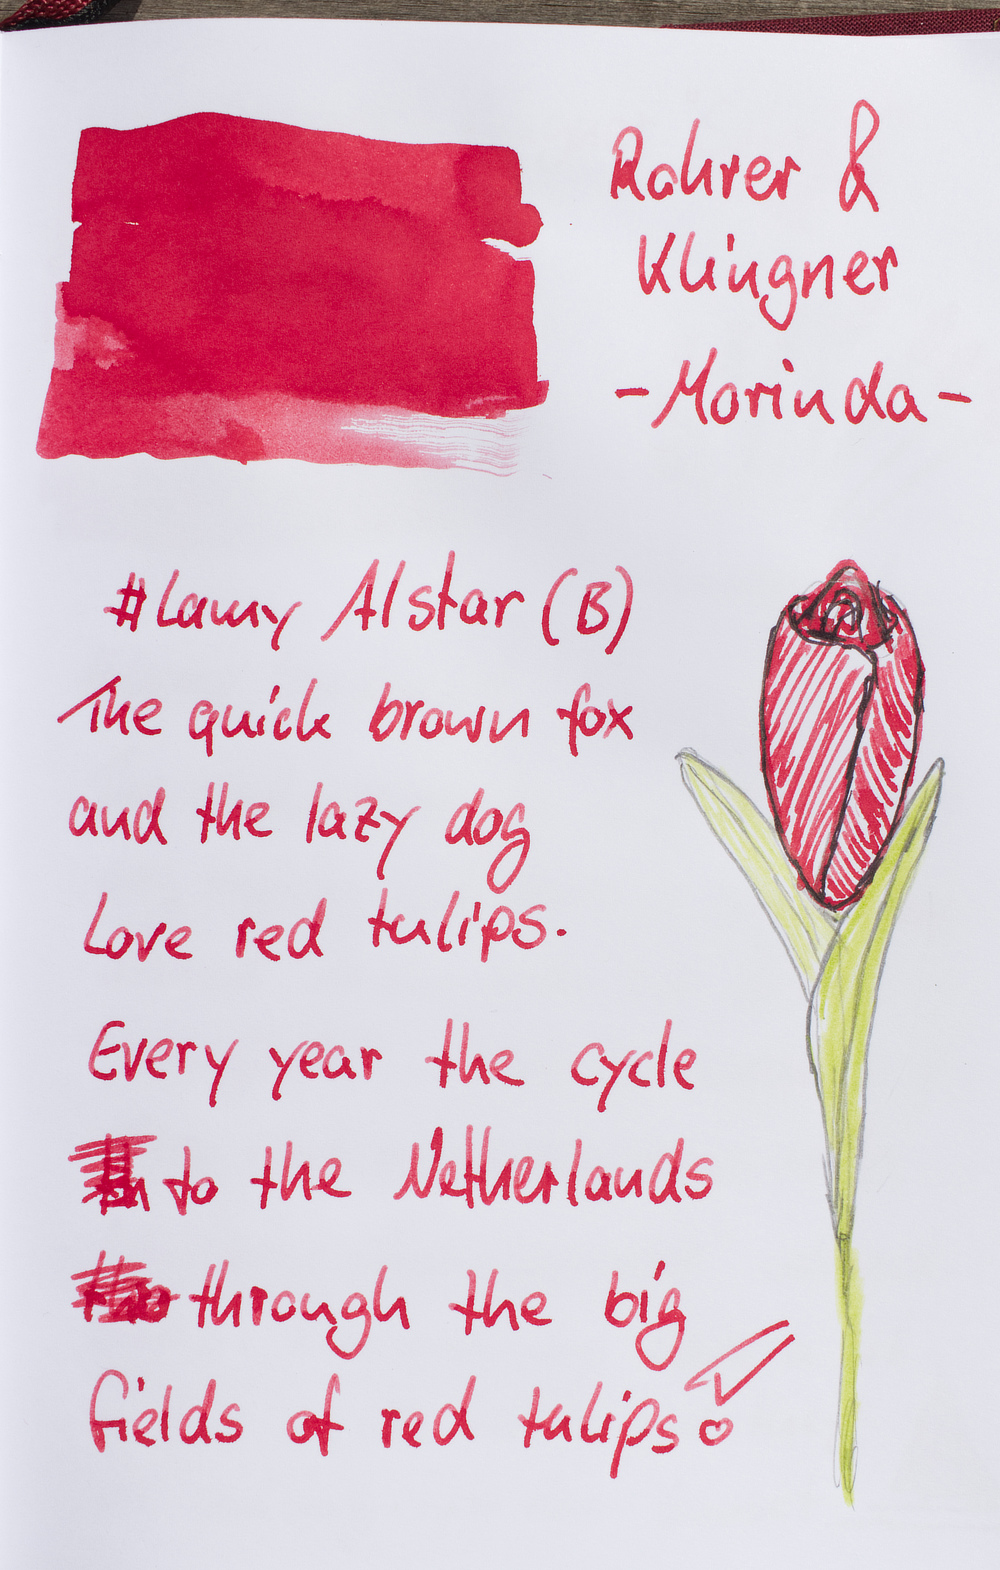 Rohrer &
Klingner
-Morinda-
#Lamy Alstar (B)
The quick brown fox
and the lazy dog
Love red tulips.
Every year the cycle
to the Netherlands
through the big
fields of red tulips!